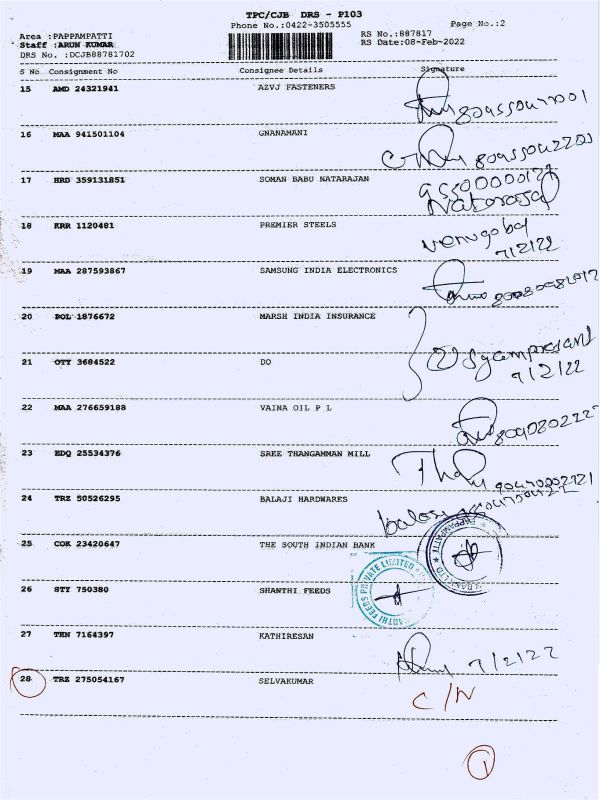 TPC/CJB DRS - P103
Phone No.:0422-3505555
Page No.:2
Area :PAPPAMPATTI
RS No.:887817
Staff :ARUN KUMAR
RS Date:08-Feb-2022
DRS No. :DCJB88781702
S No Consignment No Consignee Details Signature
15 AMD 24321941 AZVJ FASTENERS
16 MAA 941501104 GNANAMANI
17 HRD 359131851 SOMAN BABU NATARAJAN
Natarajan
18 KRR 1120481 PREMIER STEELS
venugobal
7/2/22
19 MAA 287593867 SAMSUNG INDIA ELECTRONICS
20 POL 1876672 MARSH INDIA INSURANCE
Syamprasant
7/2/22
21 OTY 3684522 DO
22 MAA 276659188 VAINA OIL P L
23 EDQ 25534376 SREE THANGAMMAN MILL
24 TRZ 50526295 BALAJI HARDWARES
balaji
25 COK 23420647 THE SOUTH INDIAN BANK
PAPPAMPATTI
26 STY 750380 SHANTHI FEEDS
SHANTHI FEEDS PRIVATE LIMITED
27 TEN 7164397 KATHIRESAN
7/2/22
28 TRZ 275054167 SELVAKUMAR
C/N
1